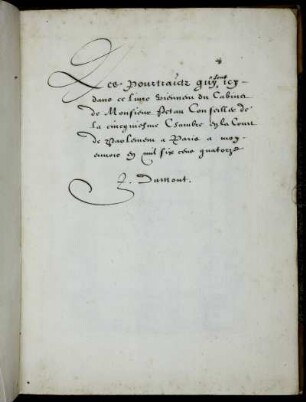 Les pourtraictz quy sont icy
dans ce Livre viennent du Cabinet
de Monsieur Petau Conseiller de
la cincquiesme Chambre en la Court
de Parlement a Paris a moy
en mil six cens quatorze
Dumont.